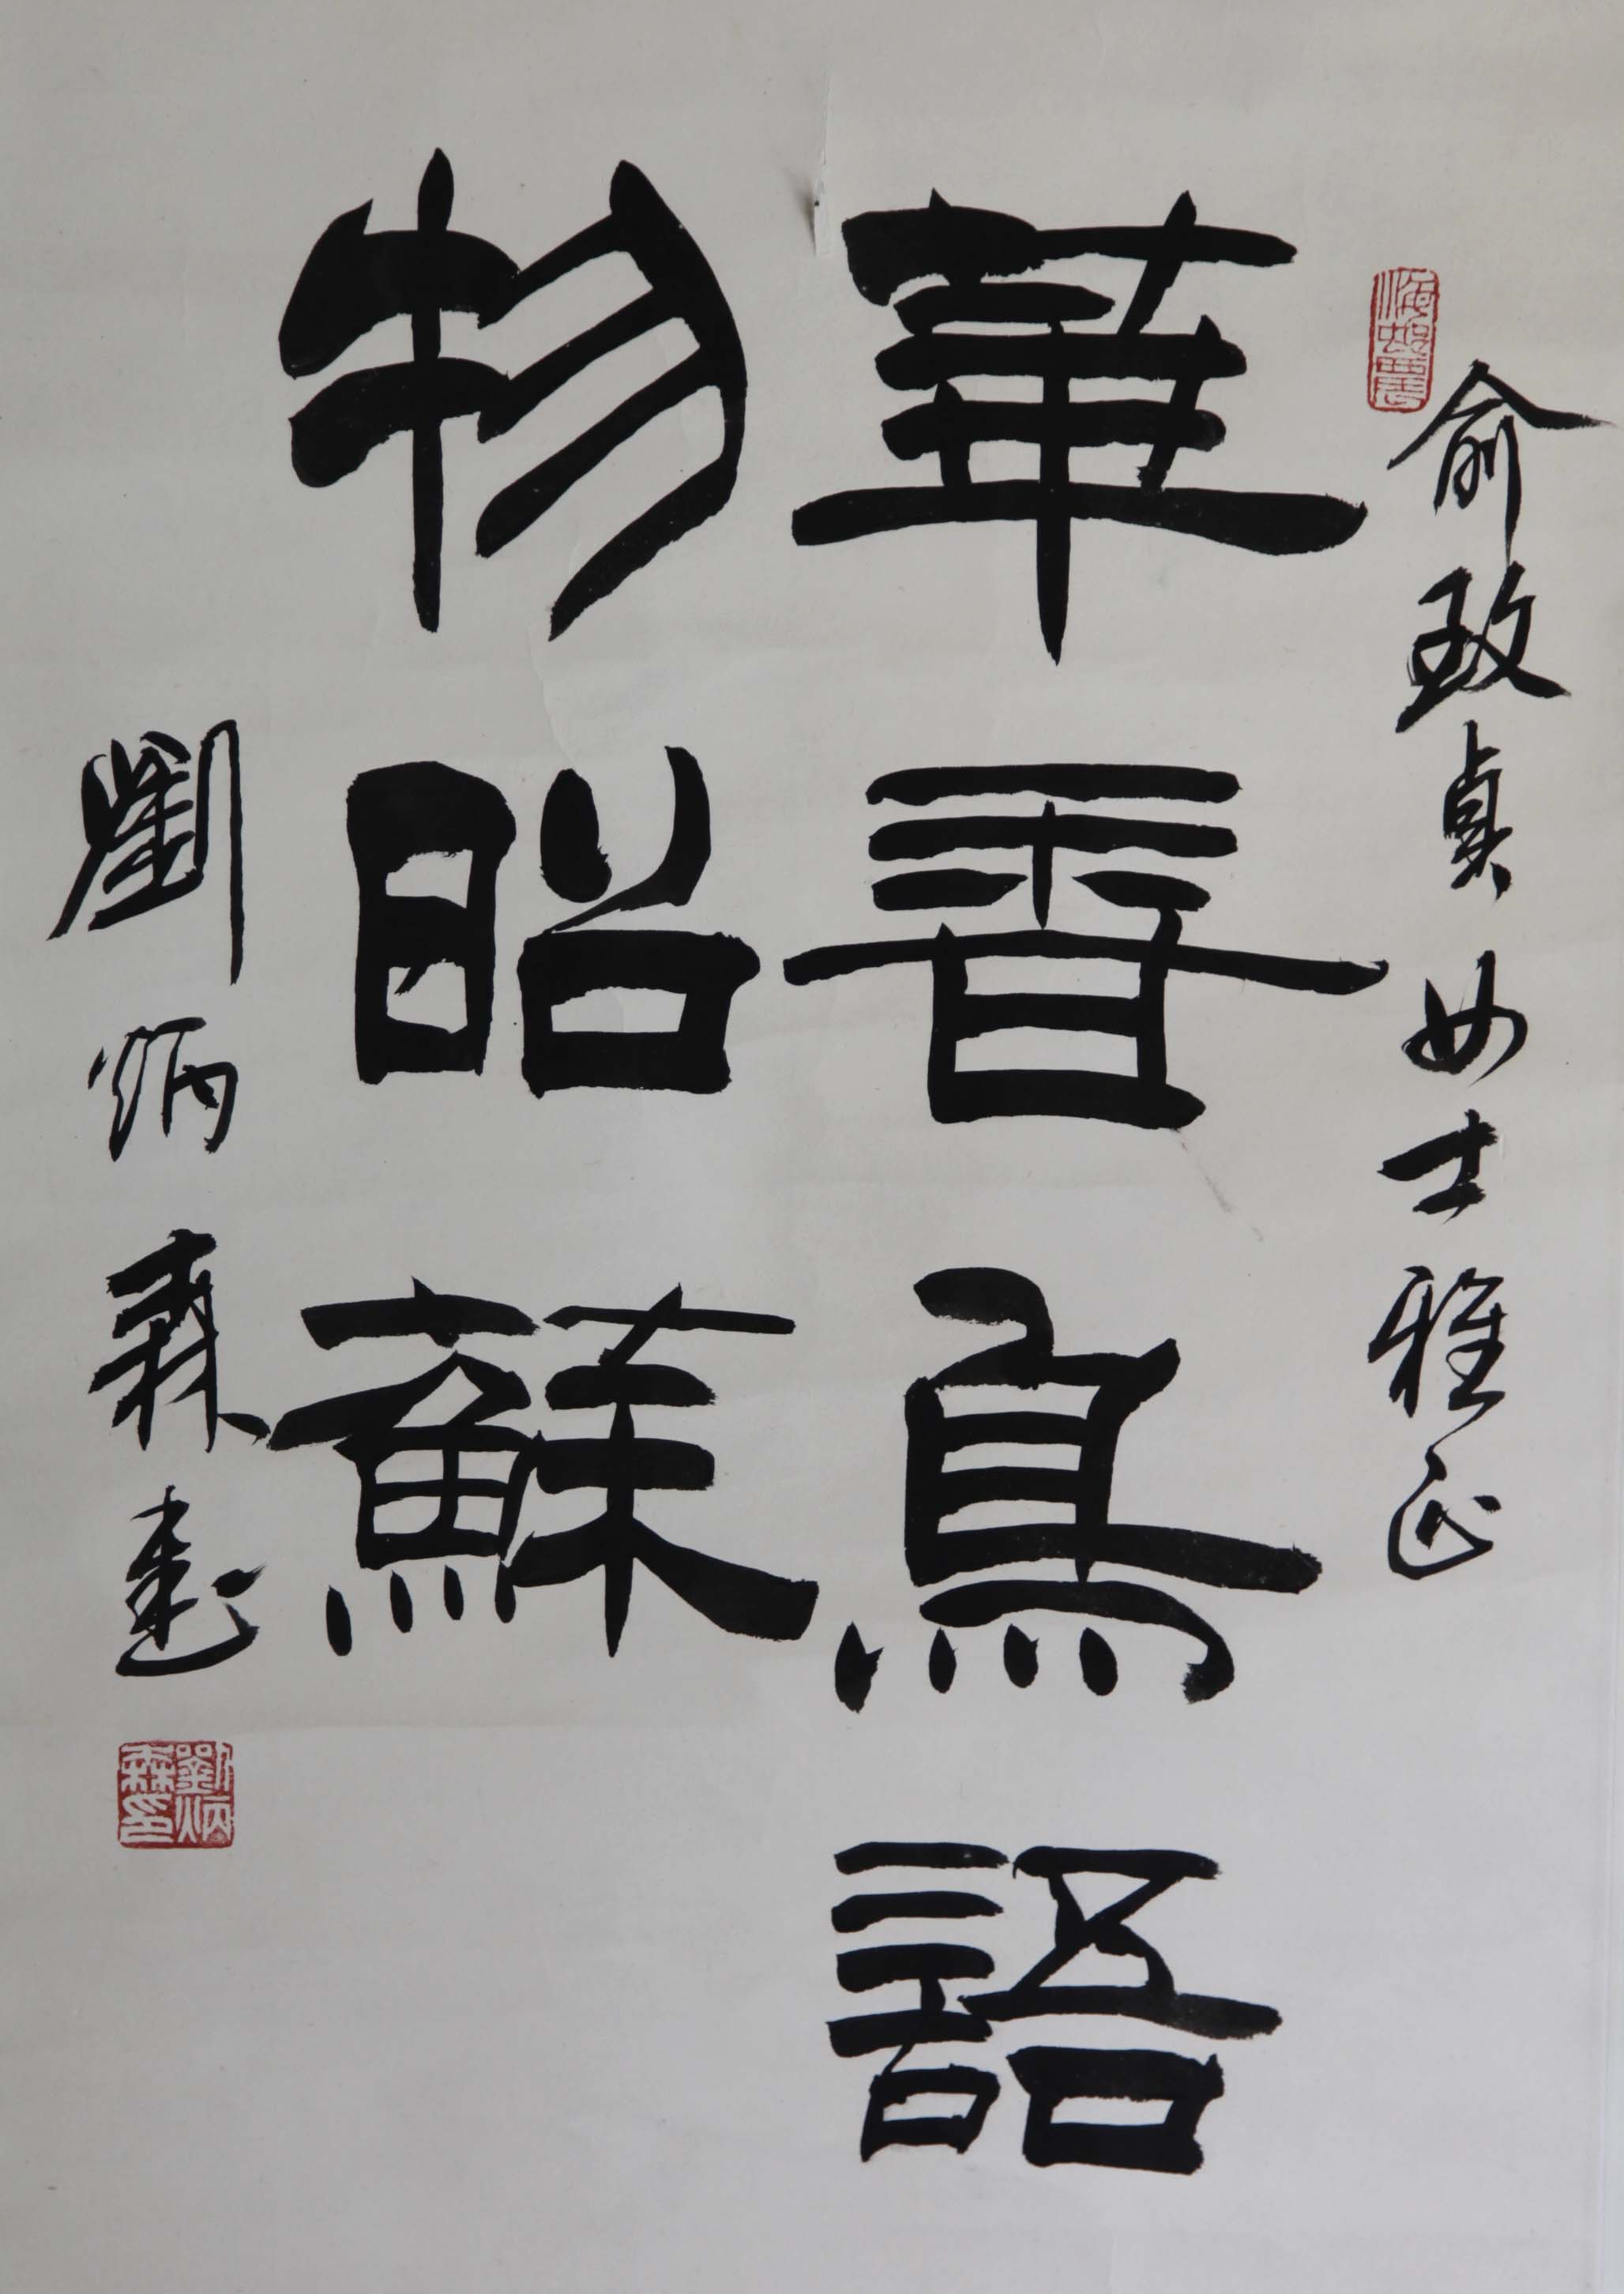 俞致貞女士雅正
華香鳥語
物昭蘇
劉炳森書
劉炳森印